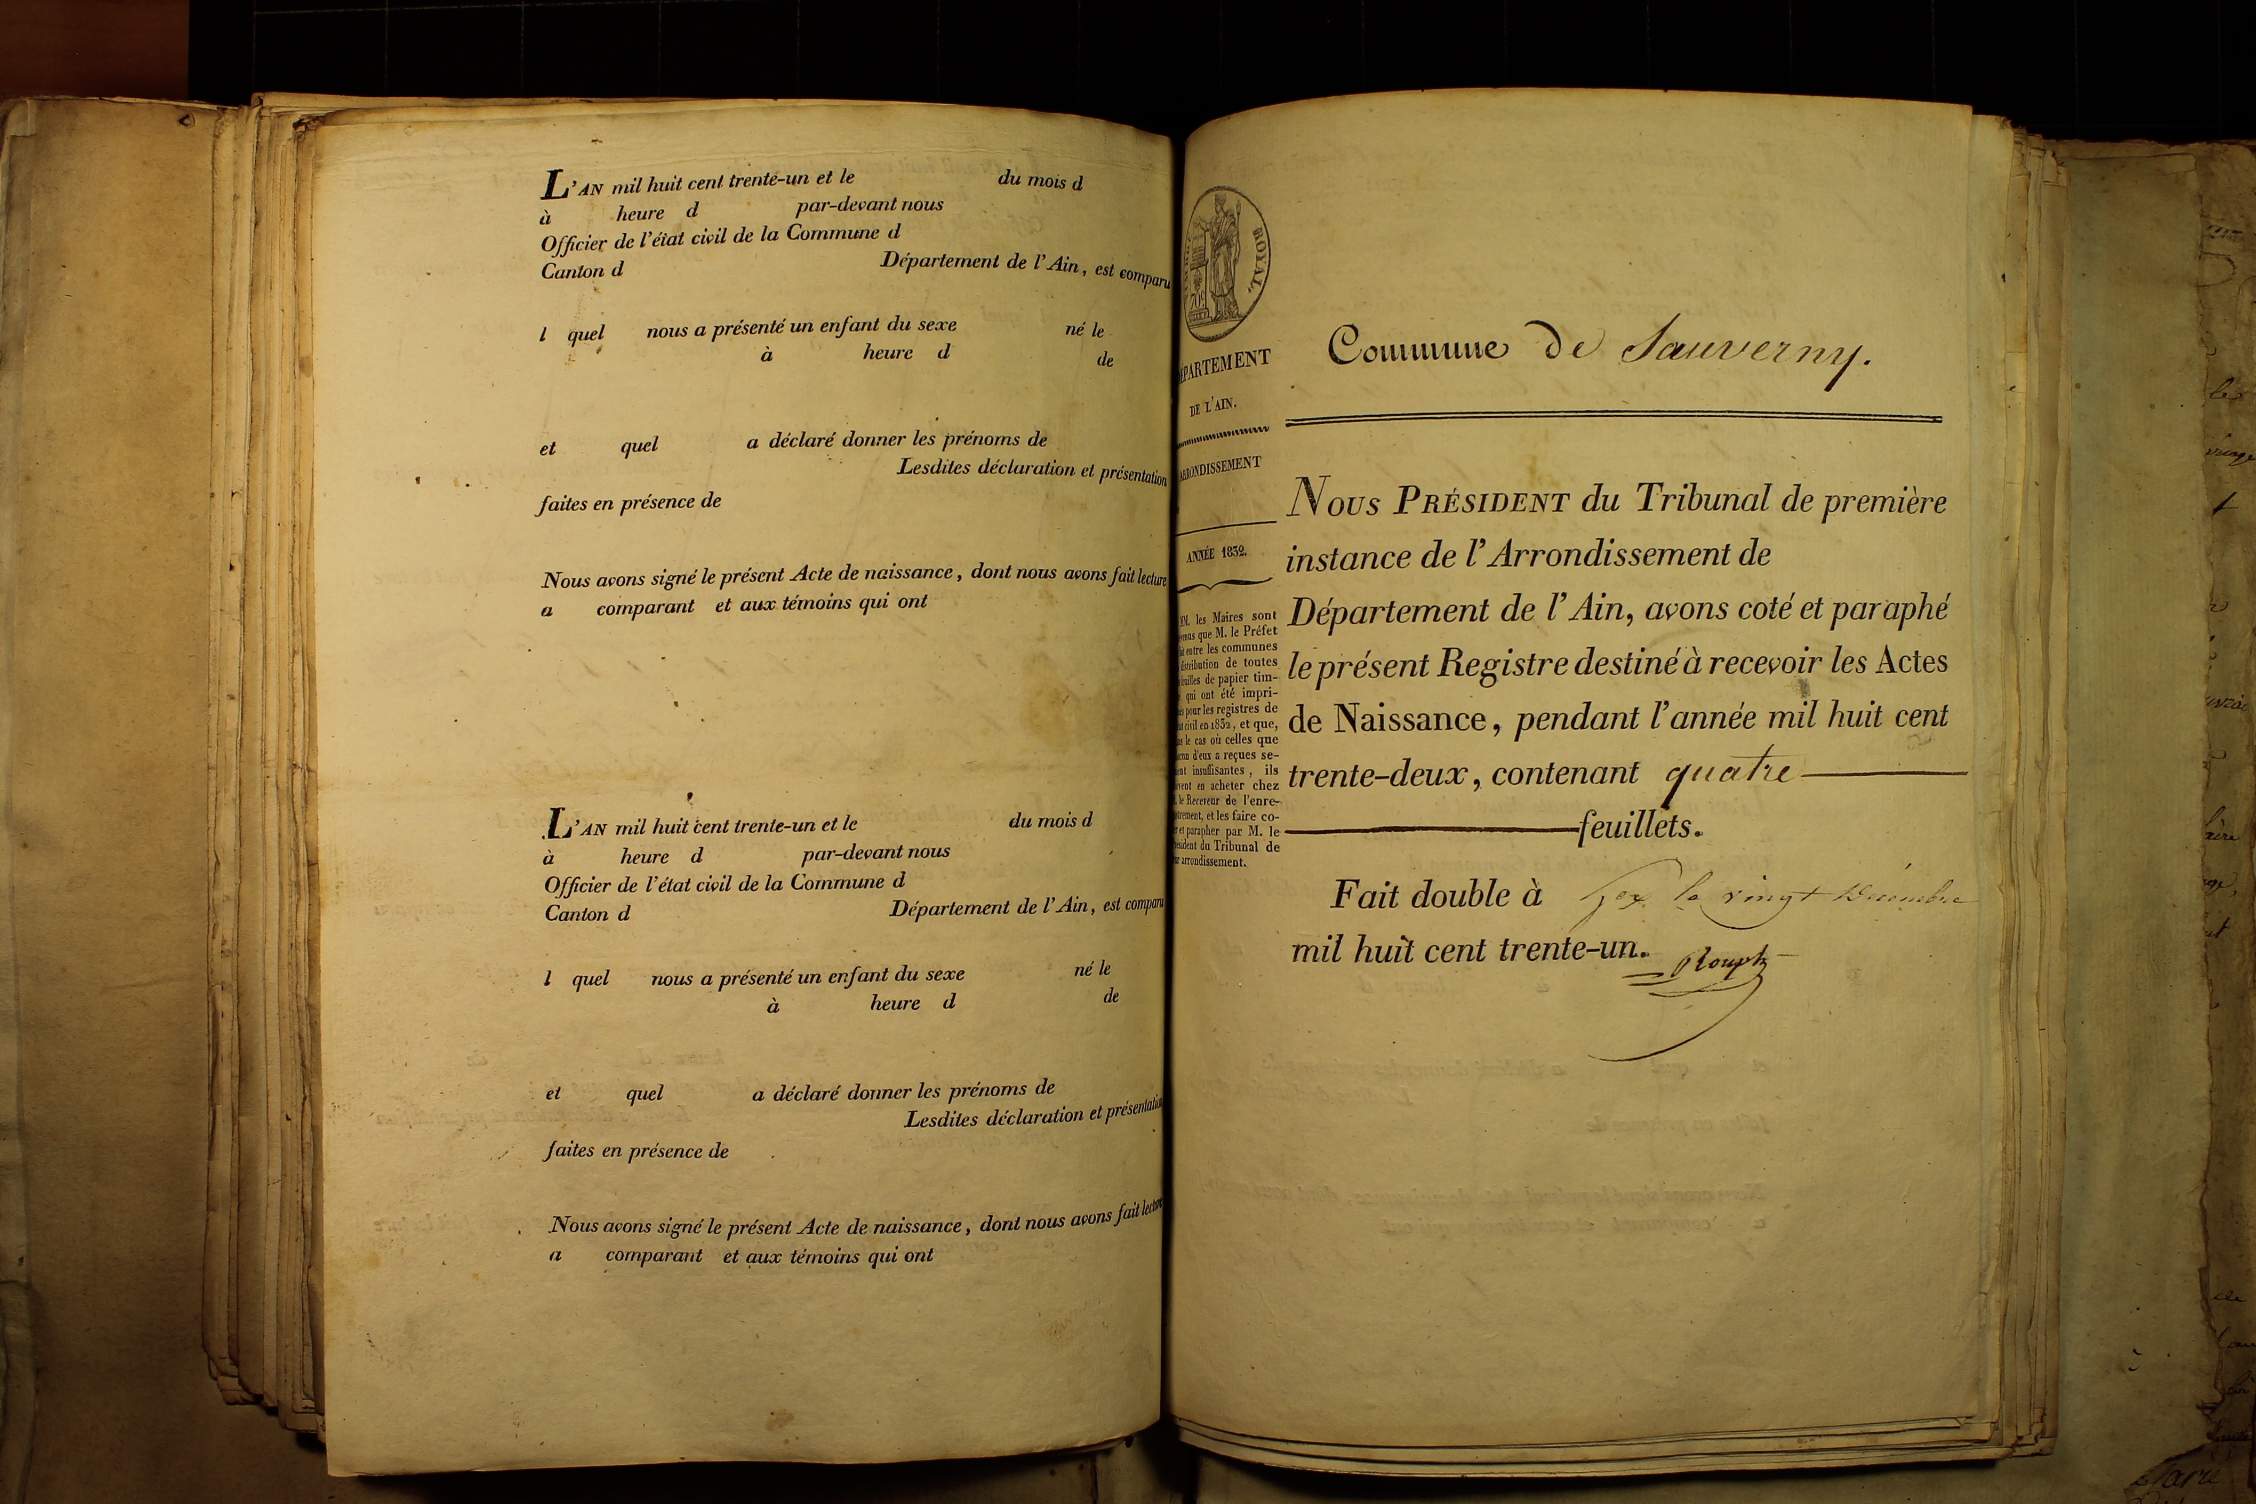 L'AN mil huit cent trente-un et le du mois d
à heure d par-devant nous
Officier de l'état civil de la Commune d
Canton d Département de l'Ain, est comparu
l quel nous a présenté un enfant du sexe né le
à heure d de
et quel a déclaré donner les prénoms de
Lesdites déclaration et présentation
faites en présence de
Nous avons signé le présent Acte de naissance, dont nous avons fait lecture
a comparant et aux témoins qui ont
L'AN mil huit cent trente-un et le du mois d
à heure d par-devant nous
Officier de l'état civil de la Commune d
Canton d Département de l'Ain, est comparu
l quel nous a présenté un enfant du sexe né le
à heure d de
et quel a déclaré donner les prénoms de
Lesdites déclaration et présentation
faites en présence de
Nous avons signé le présent Acte de naissance, dont nous avons fait lecture
a comparant et aux témoins qui ont
ROYAL.
70c
DÉPARTEMENT
DE L'AIN.
ARRONDISSEMENT
ANNÉE 1832.
MM. les Maires sont
que M. le Préfet
entre les communes
distribution de toutes
feuilles de papier tim-
qui ont été impri-
pour les registres de
civil en 1832, et que,
le cas où celles que
d'eux a reçues se-
insuffisantes, ils
en acheter chez
le Receveur de l'enre-
et les faire co-
et parapher par M. le
Président du Tribunal de
arrondissement.
Commune de Sauverny.
NOUS PRÉSIDENT du Tribunal de première
instance de l'Arrondissement de
Département de l'Ain, avons coté et paraphé
le présent Registre destiné à recevoir les Actes
de Naissance, pendant l'année mil huit cent
trente-deux, contenant quatre
feuillets.
Fait double à Gex le vingt Décembre
mil huit cent trente-un.